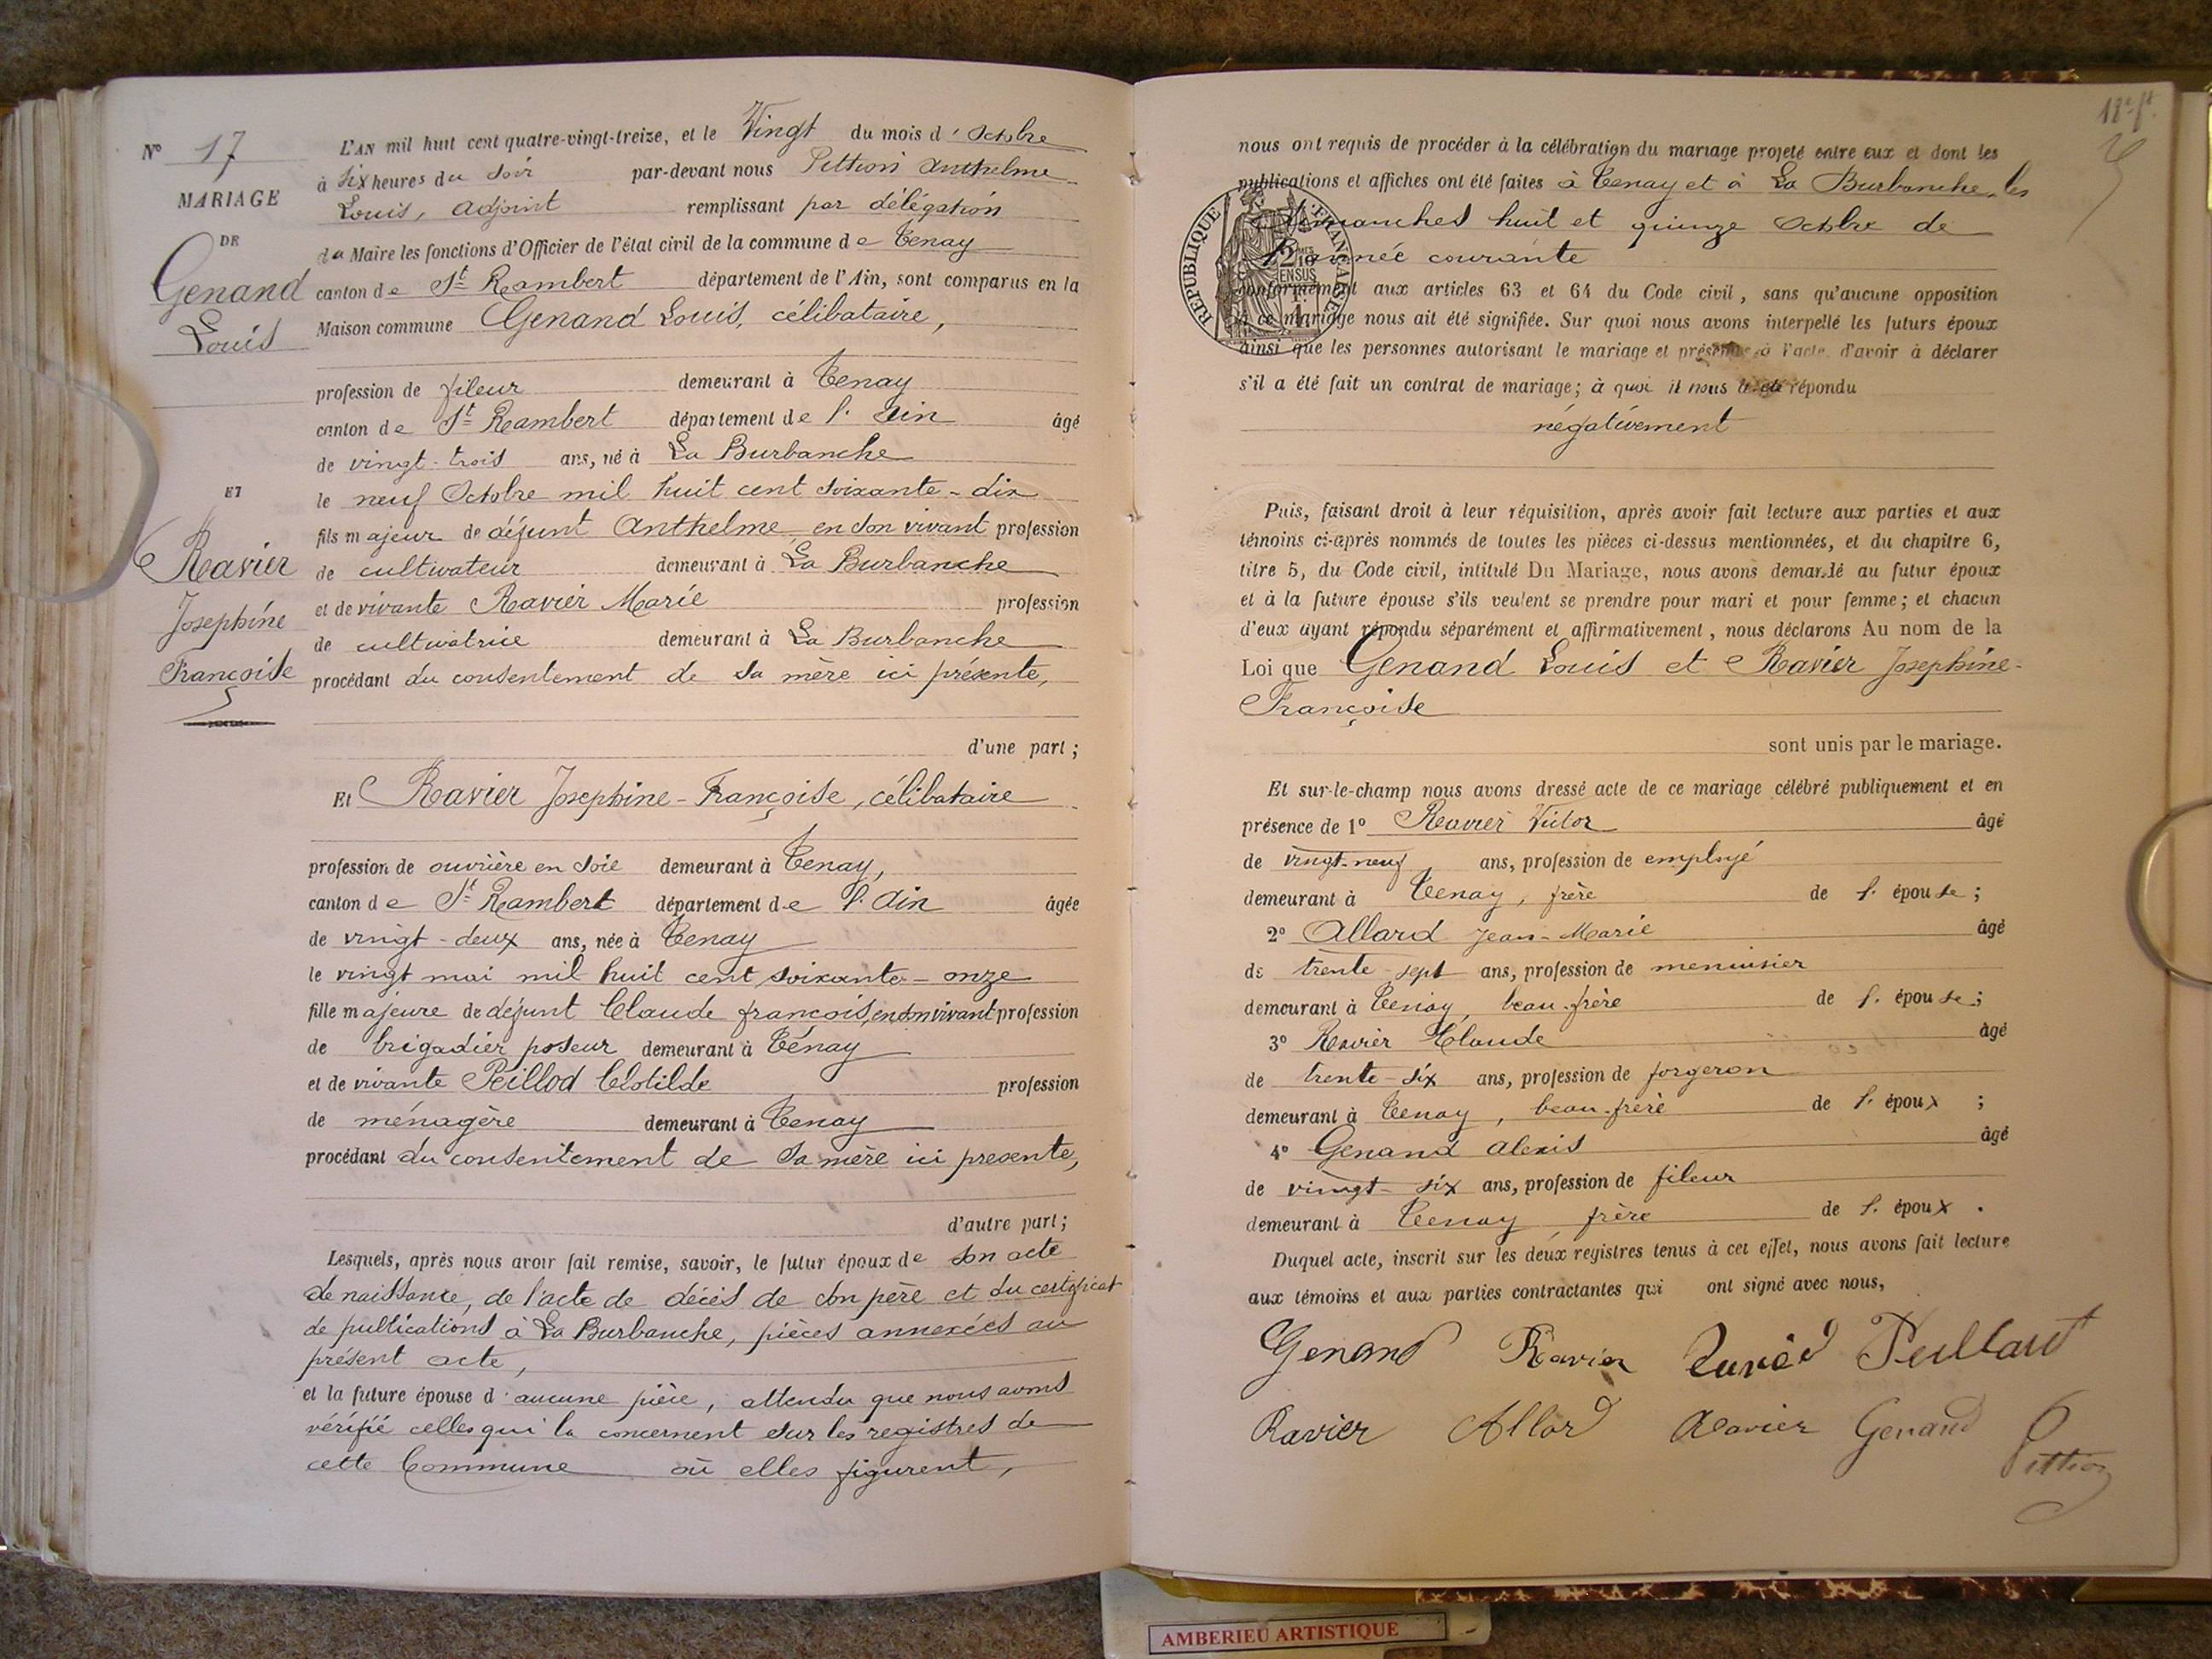 Nº 17
MARIAGE
DE
Genand
Louis
ET
Ravier
Josephine
Françoise
L'AN mil huit cent quatre-vingt-treize, et le Vingt du mois d'Octobre
à six heures du soir par-devant nous Pittion Anthelme
Louis, adjoint remplissant par délégation
du Maire les fonctions d'Officier de l'état civil de la commune de Tenay
canton de St Rambert département de l'Ain, sont comparus en la
Maison commune Genand Louis, célibataire,
profession de fileur demeurant à Tenay
canton de St Rambert département de l'Ain âgé
de vingt-trois ans, né à La Burbanche
le neuf Octobre mil huit cent soixante-dix
fils majeur de défunt Anthelme, en son vivant profession
de cultivateur demeurant à La Burbanche
et de vivante Ravier Marie profession
de cultivatrice demeurant à La Burbanche
procédant du consentement de sa mère ici présente,
d'une part ;
Et Ravier Josephine-Françoise, célibataire
profession de ouvrière en soie demeurant à Tenay,
canton de St Rambert département de l'Ain âgée
de vingt-deux ans, née à Tenay
le vingt mai mil huit cent soixante-onze
fille majeure de défunt Claude françois, en son vivant profession
de brigadier poseur demeurant à Ténay
et de vivante Peillod Clotilde profession
de ménagère demeurant à Tenay
procédant du consentement de sa mère ici presente,
d'autre part ;
Lesquels, après nous avoir fait remise, savoir, le futur époux de son acte
de naissance, de l'acte de décès de son père et du certificat
de publications à La Burbanche, pièces annexées au
présent acte,
et la future épouse d'aucune pièce, attendu que nous avons
vérifié celles qui la concernent sur les registres de
cette Commune où elles figurent,
nous ont requis de procéder à la célébration du mariage projeté entre eux et dont les
publications et affiches ont été faites à Tenay et à La Burbanche, les
dimanches huit et quinze Octobre de
l'année courante
RÉPUBLIQUE FRANÇAISE
conformément aux articles 63 et 64 du Code civil, sans qu'aucune opposition
à ce mariage nous ait été signifiée. Sur quoi nous avons interpellé les futurs époux
ainsi que les personnes autorisant le mariage et présentes à l'acte, d'avoir à déclarer
s'il a été fait un contrat de mariage; à quoi il nous a été répondu
négativement
Puis, faisant droit à leur réquisition, après avoir fait lecture aux parties et aux
témoins ci-après nommés de toutes les pièces ci-dessus mentionnées, et du chapitre 6,
titre 5, du Code civil, intitulé Du Mariage, nous avons demandé au futur époux
et à la future épouse s'ils veulent se prendre pour mari et pour femme; et chacun
d'eux ayant répondu séparément et affirmativement, nous déclarons Au nom de la
Loi que Genand Louis et Ravier Josephine-
Françoise
sont unis par le mariage.
Et sur-le-champ nous avons dressé acte de ce mariage célébré publiquement et en
présence de 1º Ravier Victor âgé
de vingt-neuf ans, profession de employé
demeurant à Tenay, frère de l'épouse ;
2º Allard Jean-Marie âgé
de trente-sept ans, profession de menuisier
demeurant à Tenay, beau-frère de l'épouse ;
3º Ravier Claude âgé
de trente-six ans, profession de forgeron
demeurant à Tenay, beau-frère de l'époux ;
4º Genand Alexis âgé
de vingt-six ans, profession de fileur
demeurant à Tenay frère de l'époux .
Duquel acte, inscrit sur les deux registres tenus à cet effet, nous avons fait lecture
aux témoins et aux parties contractantes qui ont signé avec nous,
Genand Ravier
Ravier Allard Ravier Genand Pittion
AMBERIEU ARTISTIQUE